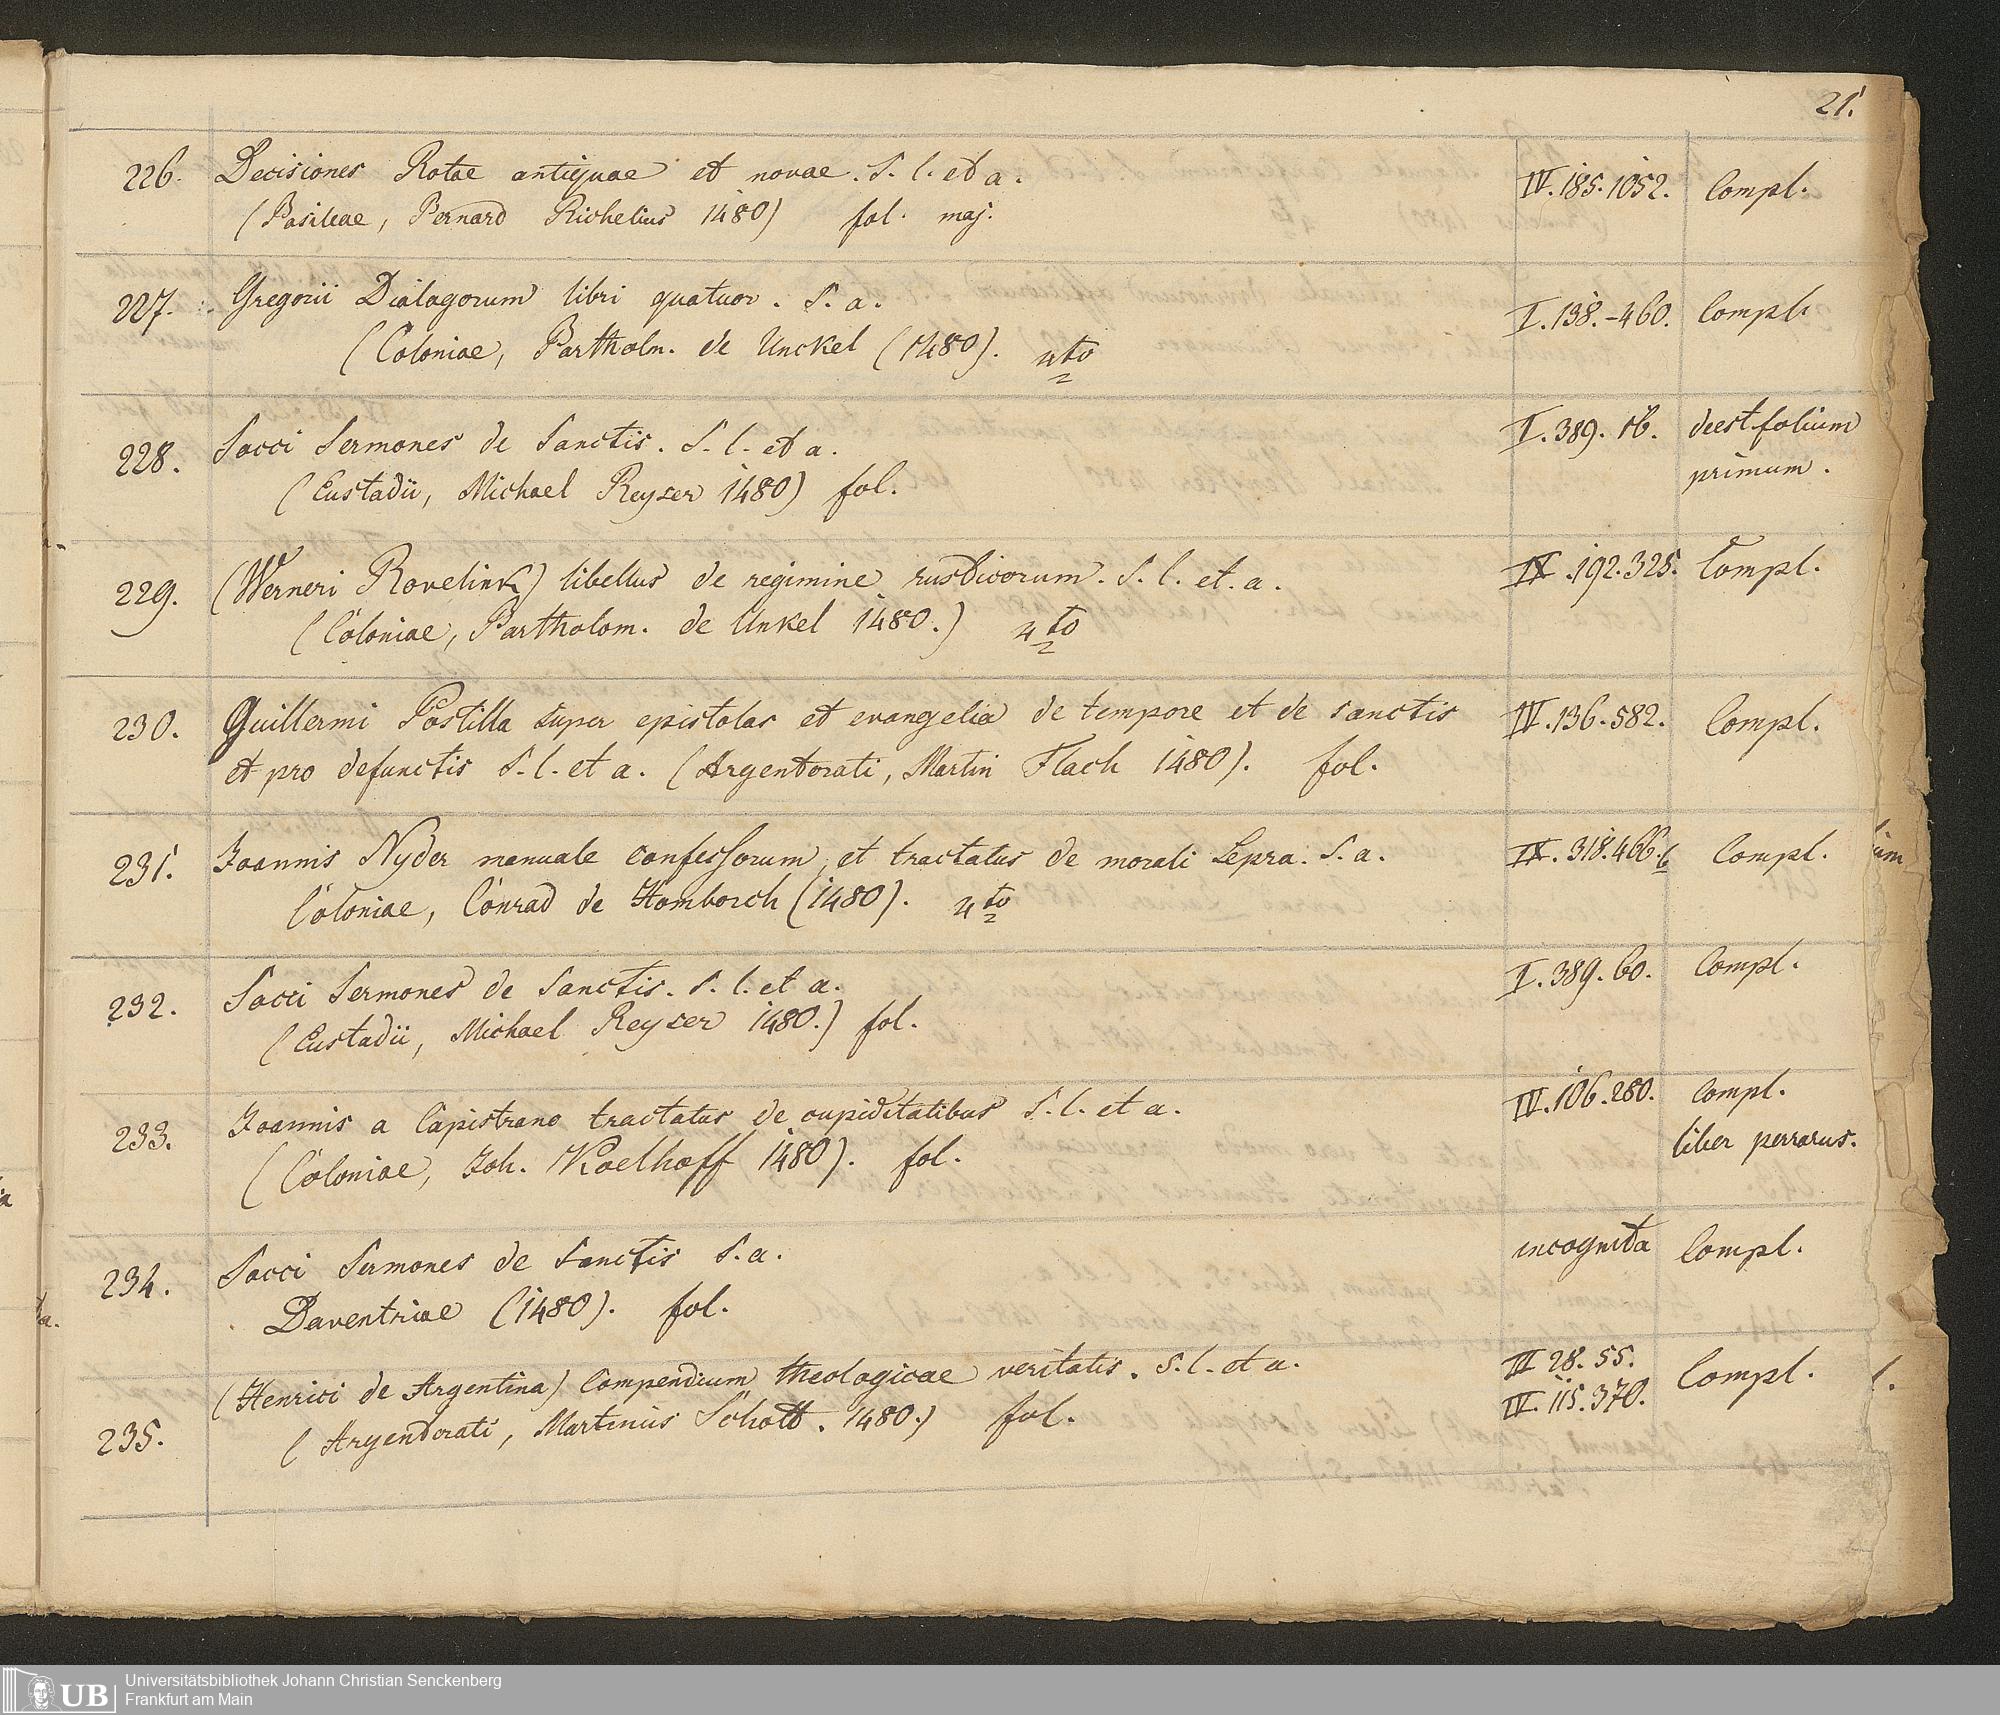 21.
226. Decisiones Rotae antiquae et novae. S. l. et a. IV. 185. 1052. Compl.
(Basileae, Bernard Richelius 1480) fol. maj.
227. Gregorii Dialogorum libri quatuor. S. a. I. 138.-460. Compl.
(Coloniae, Bartholm. de Unckel (1480). 4to
228. Socci Sermones de Sanctis. S. l. et a. I. 389. 16. deest folium
(Eustadii, Michael Reyser 1480) fol. primum.
229. (Werneri Rovelink) libellus de regimine rusticorum. S. l. et. a. IX. 192. 325. Compl.
(Coloniae, Bartholom. de Unkel 1480.) 4to
230. Guillermi Postilla super epistolas et evangelia de tempore et de sanctis IV. 136. 582. Compl.
et pro defunctis S. l. et a. (Argentorati, Martin Flach 1480). fol.
231. Joannis Nyder manuale confessorum, et tractatus de morali Lepra. S. a. IX. 318. 466. b Compl.
Coloniae, Conrad de Homborch (1480). 4to
232. Socci Sermones de Sanctis. S. l. et a. I. 389. 60. Compl.
(Eustadii, Michael Reyser 1480.) fol.
233. Joannis a Capistrano tractatus de cupiditatibus S. l. et a. IV. 106. 280. Compl.
(Coloniae, Joh. Koelhoff 1480). fol. liber perrarus.
234. Socci Sermones de Sanctis S. a. incognita Compl.
Daventriae (1480). fol.
235. (Henrici de Argentina) Compendium theologicae veritatis. S. l. et a. II 28. 55. Compl.
(Argentorati, Martinus Schott. 1480.) fol. IV. 115. 370.
Universitätsbibliothek Johann Christian Senckenberg
Frankfurt am Main
UB